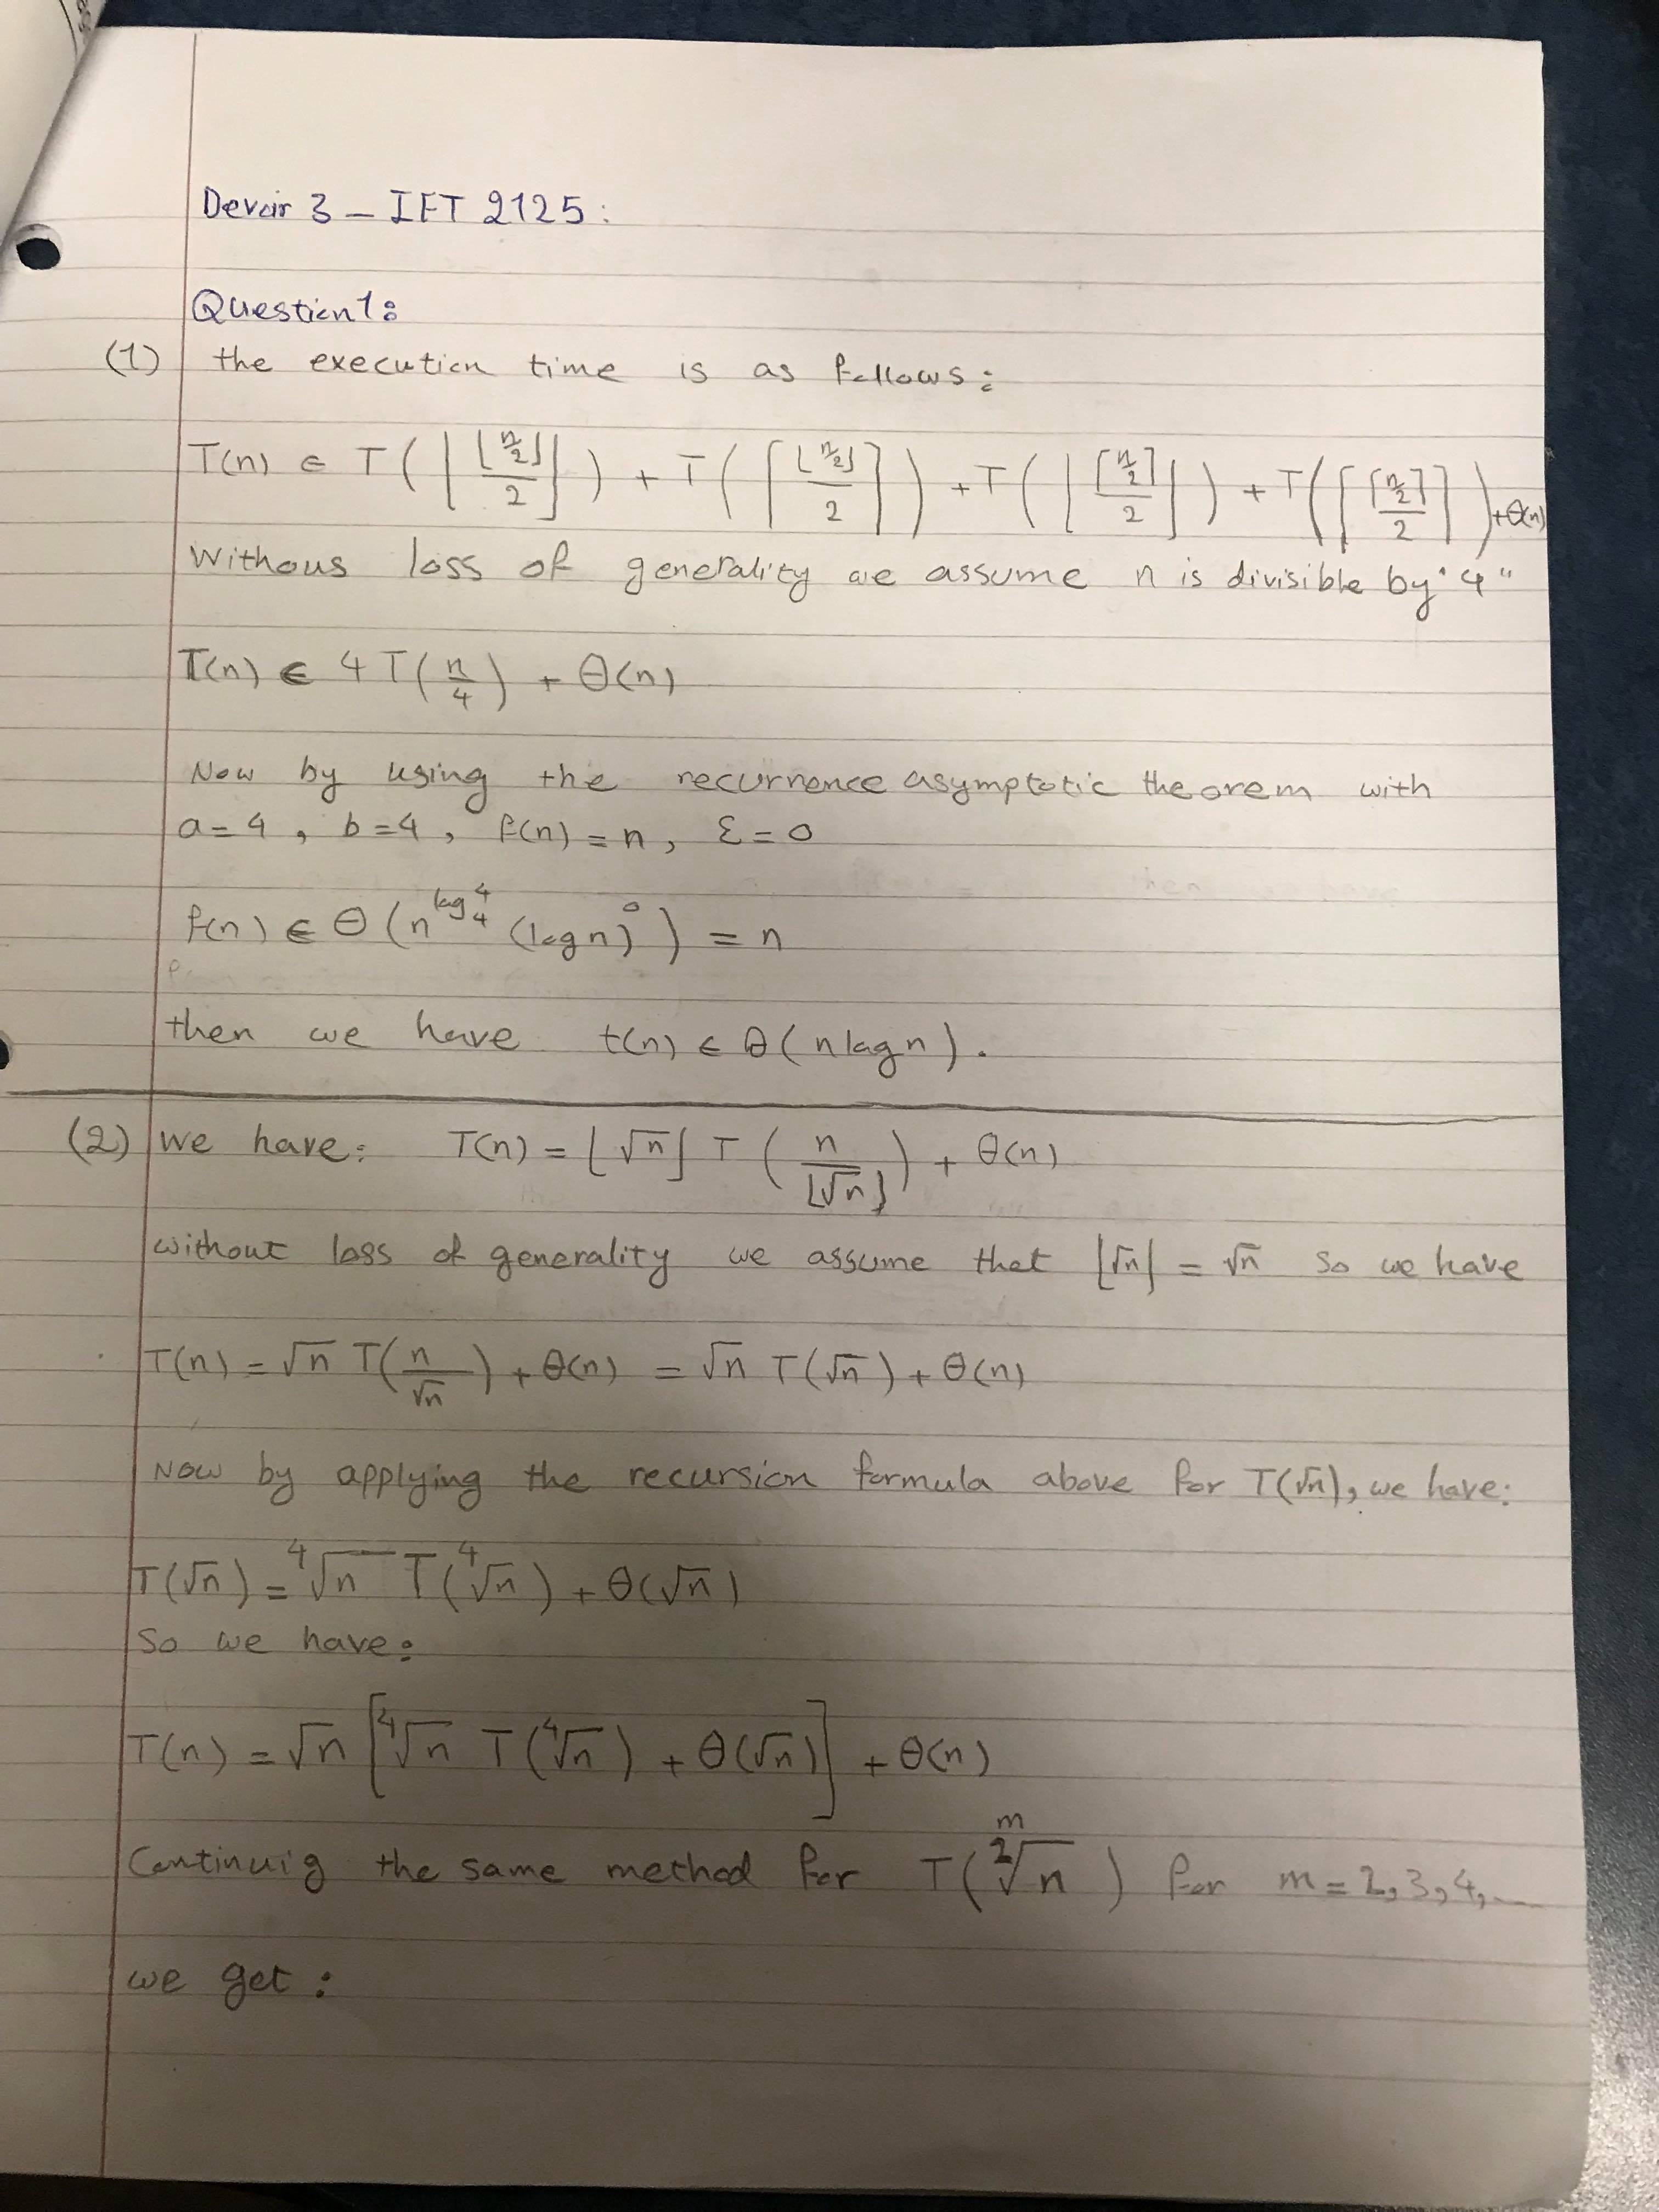 Devoir 3 - IFT 2125:
Question 1:
(1) the execution time is as follows:
T(n) ∈ T(⌊⌊n/2⌋/2⌋) + T(⌈⌊n/2⌋/2⌉) + T(⌊⌈n/2⌉/2⌋) + T(⌈⌈n/2⌉/2⌉) + θ(n)
Withous loss of generality we assume n is divisible by "4"
T(n) ∈ 4T(n/4) + θ(n)
Now by using the recurrence asymptotic theorem with
a=4, b=4, f(n)=n, ε=0
f(n) ∈ θ(n^(log_4 4) (log n)^0) = n
then we have t(n) ∈ θ(n log n).
(2) we have: T(n) = ⌊√n⌋ T(n/⌊√n⌋) + θ(n)
without loss of generality we assume that ⌊√n⌋ = √n so we have
T(n) = √n T(n/√n) + θ(n) = √n T(√n) + θ(n)
Now by applying the recursion formula above for T(√n), we have:
T(√n) = ∜n T(∜n) + θ(√n)
So we have:
T(n) = √n [∜n T(∜n) + θ(√n)] + θ(n)
Continuig the same method for T(²^ᵐ√n) for m = 2, 3, 4, ...
we get: